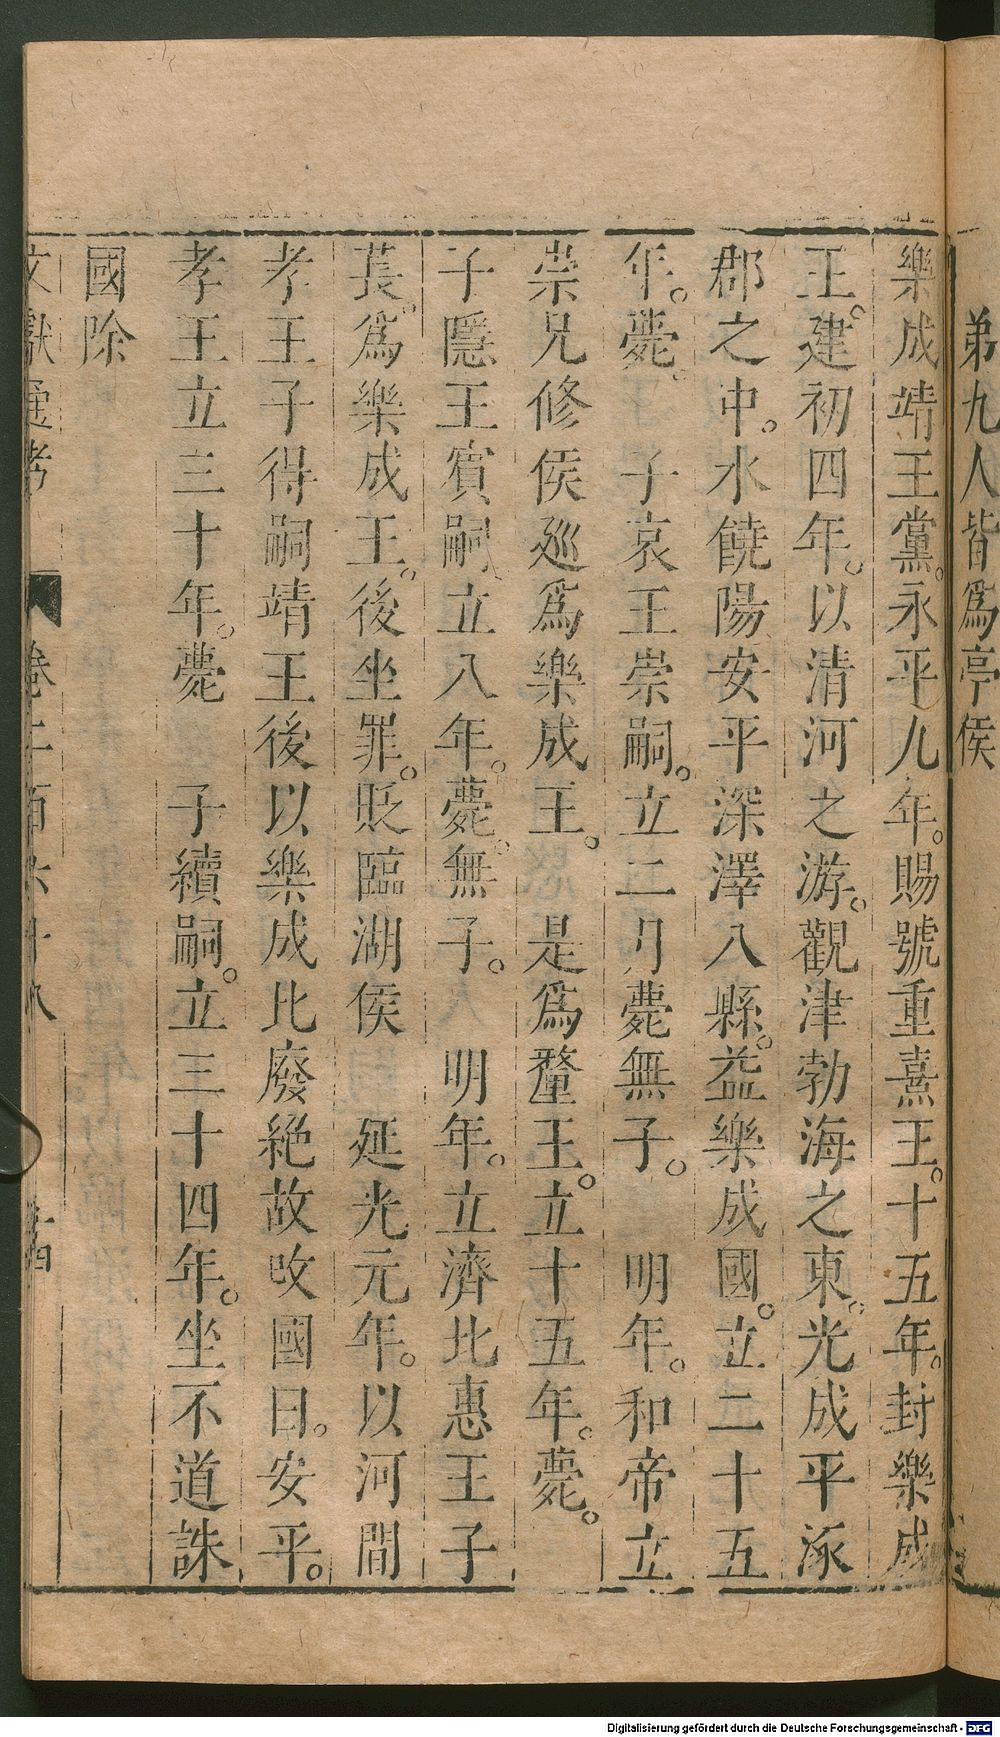 弟九人皆爲亭侯
樂成靖王黨。永平九年。賜號重熹王。十五年。封樂成
王。建初四年。以清河之游。觀津勃海之東。光成平涿
郡之中。水饒陽安平深澤八縣。益樂成國。立二十五
年。薨。 子哀王崇嗣。立二月薨無子。 明年。和帝立
崇兄修侯巡爲樂成王。 是爲釐王。立十五年。薨。
子隱王賓嗣。立八年。薨。無子。 明年。立濟北惠王子
萇。爲樂成王。後坐罪。貶臨湖侯 延光元年。以河間
孝王子得嗣靖王後以樂成比廢絶故改國曰。安平。
孝王立三十年。薨 子續嗣。立三十四年。坐不道誅
國除
文獻通考 卷二百六十八
Digitalisierung gefördert durch die Deutsche Forschungsgemeinschaft - DFG